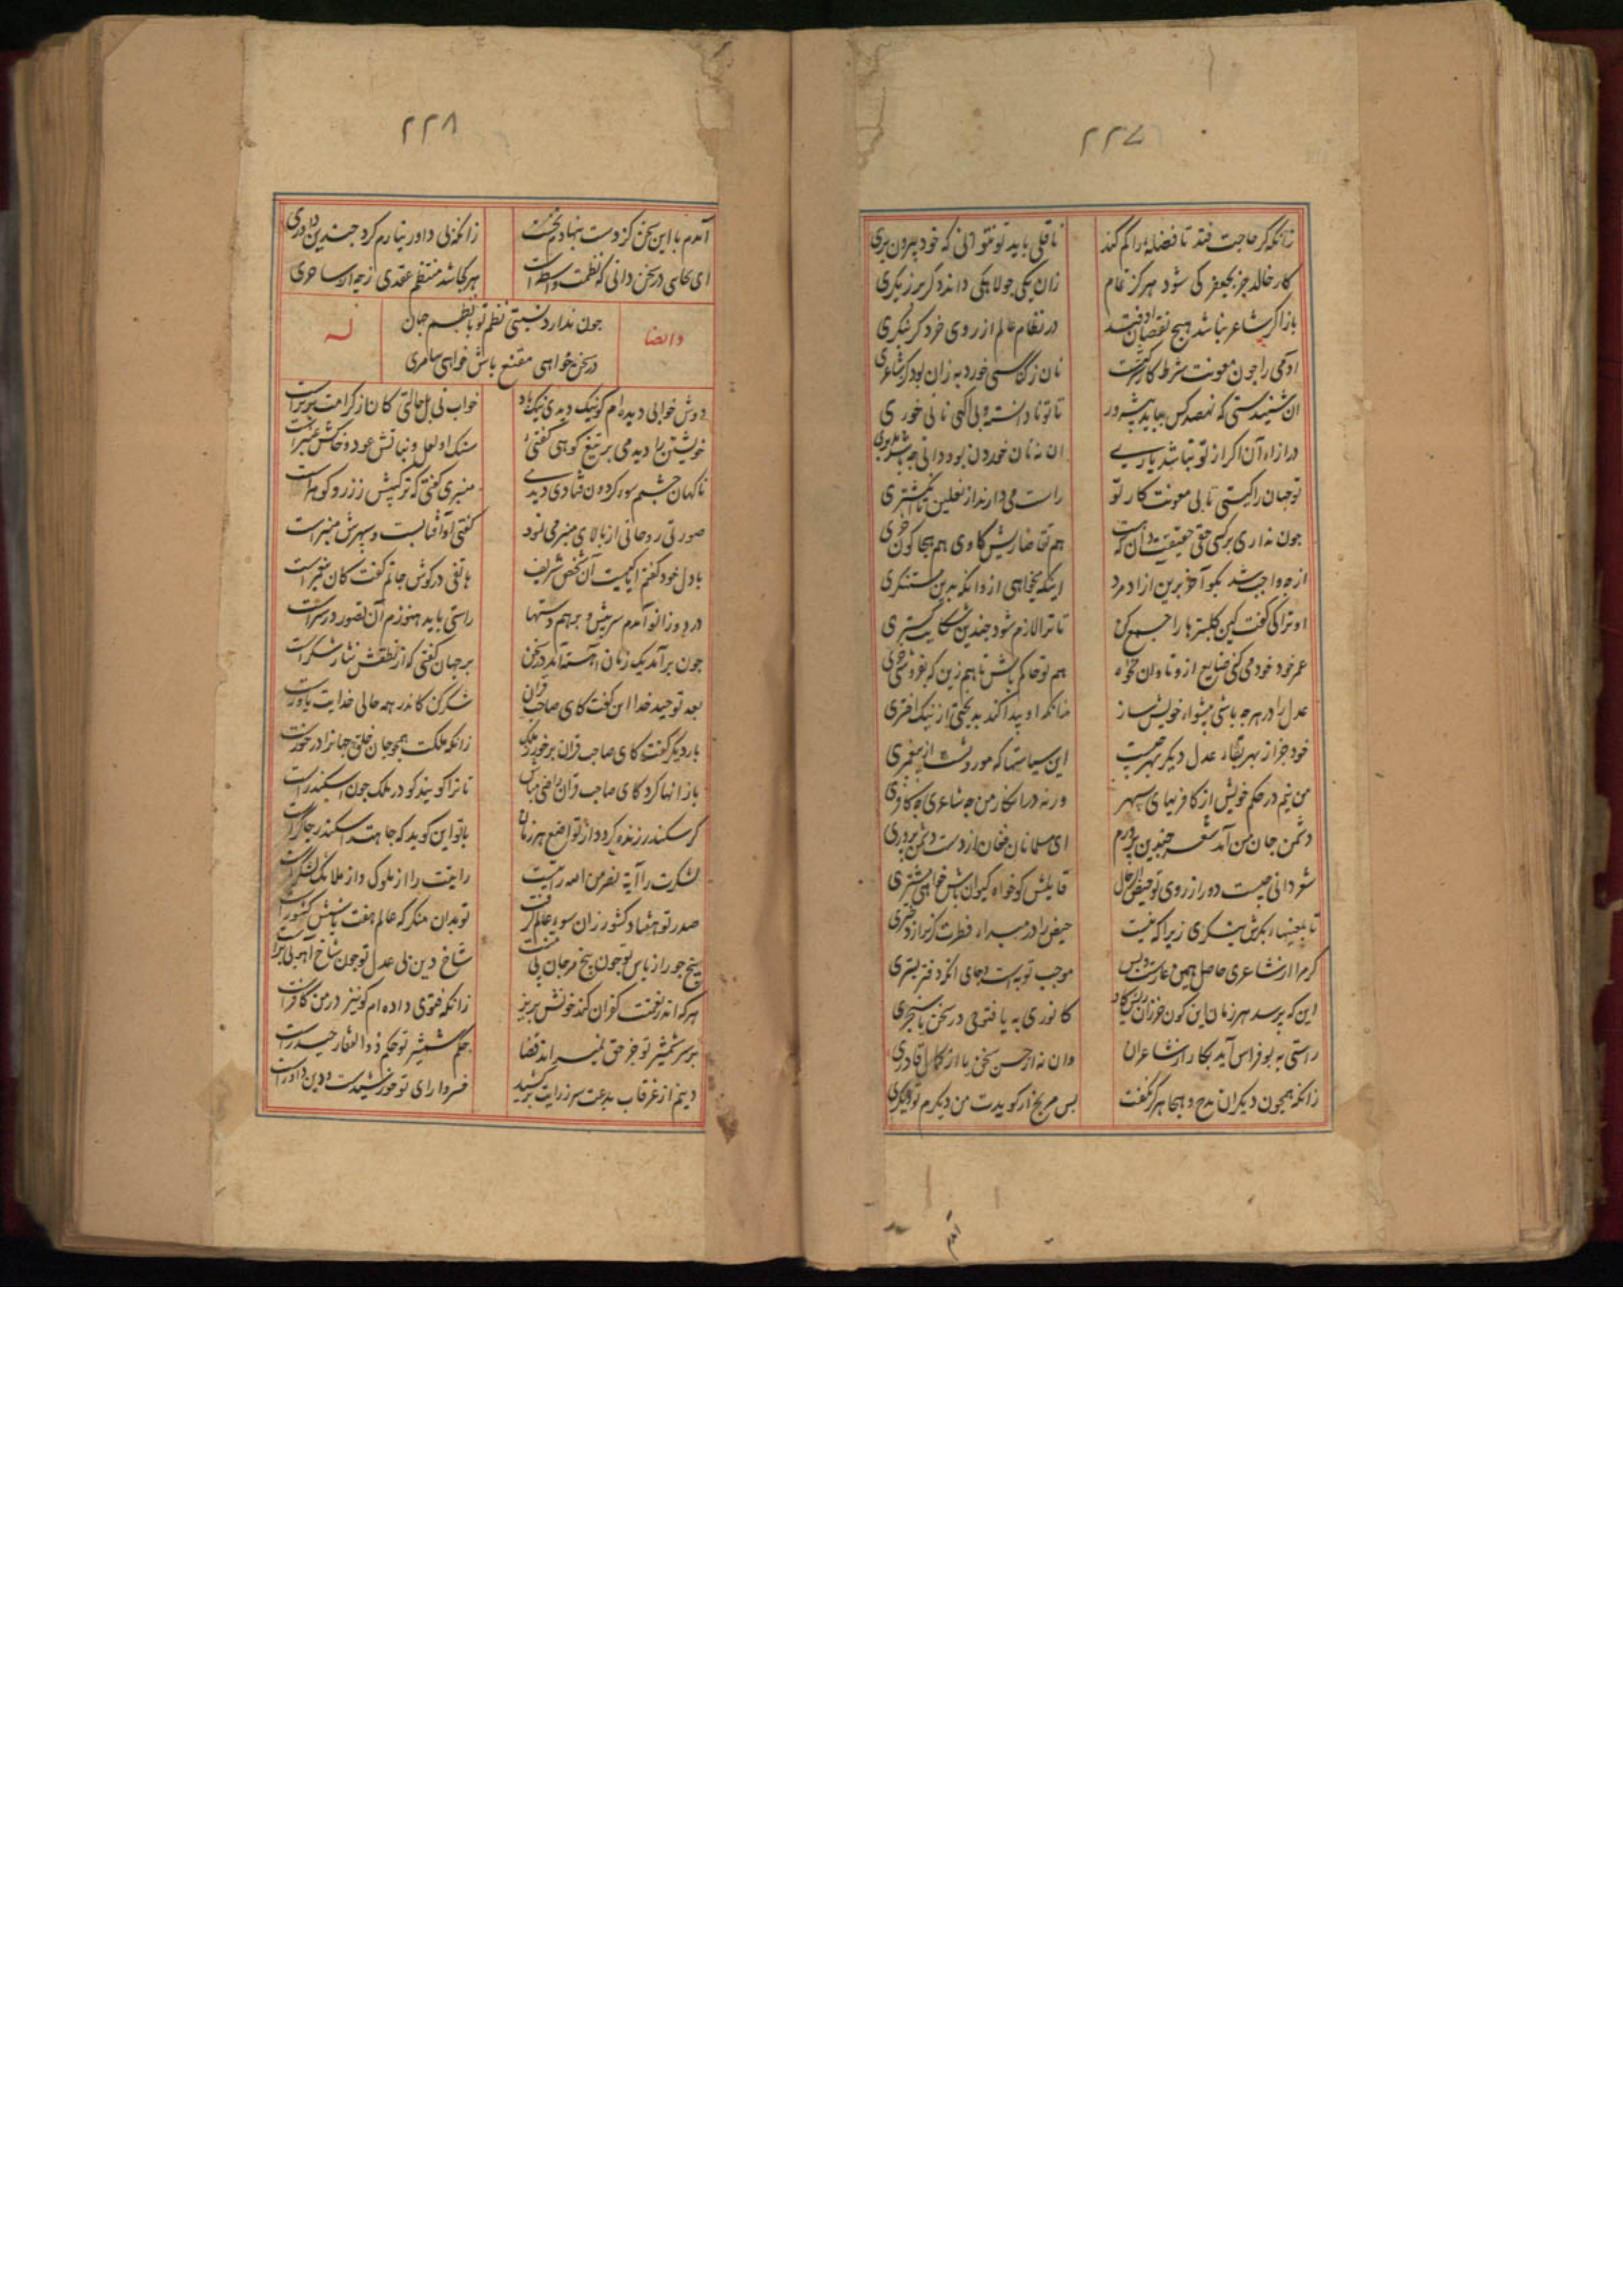 ۲۲۷
زانکه گر حاجت فتد تا فضله را گم کند ناقلی باید تو نتوانی که خود بیرون بری
کار خالد جز بجعفر کی شود هرگز تمام زان یکی جولاهکی داند دگر برزیگری
باز اگر شاعر نباشد هیچ نقصانی فتد در نظام عالم از روی خرد گر بنگری
آدمی را چون معونت شرط کار نان ز کناسی خورد به زان بود کز شاعری
آن شنیدستی که نهصد کس بباید پیشه ور تا تو نادانسته و بی آگهی نانی خوری
در ازاء آن اگر از تو نباشد یاریی آن نه نان خوردن بود دانی چه باشد
تو جهان را کیستی تا بی معونت کار تو راست می دارند از نعلین تا انگشتری
چون نداری بر کسی حقی حقیقت دان که هست هم تقاضا ریش گاوی هم هجا کون خری
از چه واجب شد بگو آخر برین آزاد مرد اینکه میخواهی ازو وانگه بدین مستکبری
او ترا کی گفت کین کلپترها را جمع کن تا ترا لازم شود چندین شکایت گستری
عمر خود خود می کنی ضایع ازو تاوان مخواه هم تو حاکم باش تا هم زین که بفروشی خری
عدل را در هر چه باشی پیشواء خویش ساز زانکه او پیدا کند بدبختی از نیک اختری
خود جز از بهر بقاء عدل دیگر بهر چیست این سیاستها که موروثست از پیغمبری
من نیم در حکم خویش از کافریهای سپهر ورنه در انکار من چه شاعری چه کافری
دشمن جان من آمد شعر چندین پرورم ای مسلمانان فغان از دست دشمن پروری
شعر دانی چیست دور از روی تو حیض الرجال قایلش گو خواه کیوان باش خواهی مشتری
تا بمعنیهاء بکرش ننگری زیرا که نیست حیض را در مبداء فطرت گزیر از دختری
گر مرا از شاعری حاصل همین عارست و بس موجب توبه است و جای آنکه دفتر بستری
این که پرسد هر زمان این کون خر کانوری به یا فتوحی در سخن یا سنجری
راستی به بوفراس آید بکار از شاعران وان نه از حسن سخن بل از کمال قادری
زانکه همچون دیگران مدح و هجا هرگز نگفت پس مرنج ار گویدت من دیگرم تو دیگری
۲۲۸
آمدم با این سخن کز دست بنهادم نخست زانکه بی داور نیارم کرد چندین داوری
ای بجایی در سخن دانی که نظمت واسطه است هر کجا شد منتظم عقدی ز چه از ساحری
چون ندارد نسبتی نظم تو با نظم جهان
وایضا له
در سخن خواهی مقنع باش خواهی سامری
دوش خوابی دیده ام گو نیک دیدی نیک باد خواب نی بل حالتی کان از کرامت برترست
خویشتن را دیدمی بر تیغ کوهی گفتئی سنگ او لعل و نباتش عود و خاکش عنبرست
ناگهان چشمم سوء گردون فتادی دیدمی منبری گفتی که ترکیبش ز زر و گوهرست
صورتی روحانی از بالای منبر می نمود گفتی او آفتابست و سپهرش منبرست
با دل خود گفتم آیا کیست آن شخص شریف هاتفی در گوش جانم گفت کان پیغمبرست
در دو زانو آمدم سر پیش و بر هم دستها راستی باید هنوزم آن تصور در سرست
چون برآمد یک زمان آهسته آمد در سخن بر جهان گفتی که از نطقش نثار شکرست
بعد توحید خدا این گفت کای صاحب قران شکر کن کاندر همه حالی خدایت یاورست
بار دیگر گفت کای صاحب قران بر خور ز ملک زانکه ملکت همچو جان خلق جهانرا در خورست
باز انها کرد کای صاحب قران راضی مباش تا ترا گویند کو در ملک چون اسکندرست
گر سکندر زنده گردد از تواضع هر زمان با تو این گوید که جاهت را سکندر چاکرست
لشکرت را آیة نصر من الله رایتست رایتت را از ملوک و از ملایک لشکرست
صدر تو هشتاد کشور زان سوء عالم گرفت تو بدان منگر که عالم هفت یا شش کشورست
بیخ جور از باس تو چون بیخ مرجان بی منبتست شاخ دین بی عدل تو چون شاخ آهو بی برست
هر که اندر نعمتت کفران کند خونش بریز زانکه فتوی داده ام کو نیز در من کافرست
بر سر شمشیر تو جز حق نمیراند قضا حکم شمشیر تو حکم ذوالفقار حیدرست
دینم از غرقاب بدعت سر ز رایت برکشید خسروا رای تو خورشیدست و دین